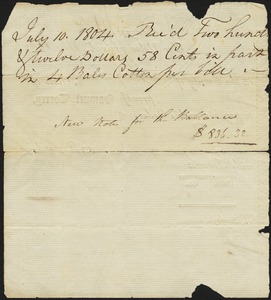 July 10. 1804 Rec'd Two hund
& twelve Dollars 58 Cents in part
in 4 Bales Cotton per bill. —
New Note for the Ballance
$ 836.30